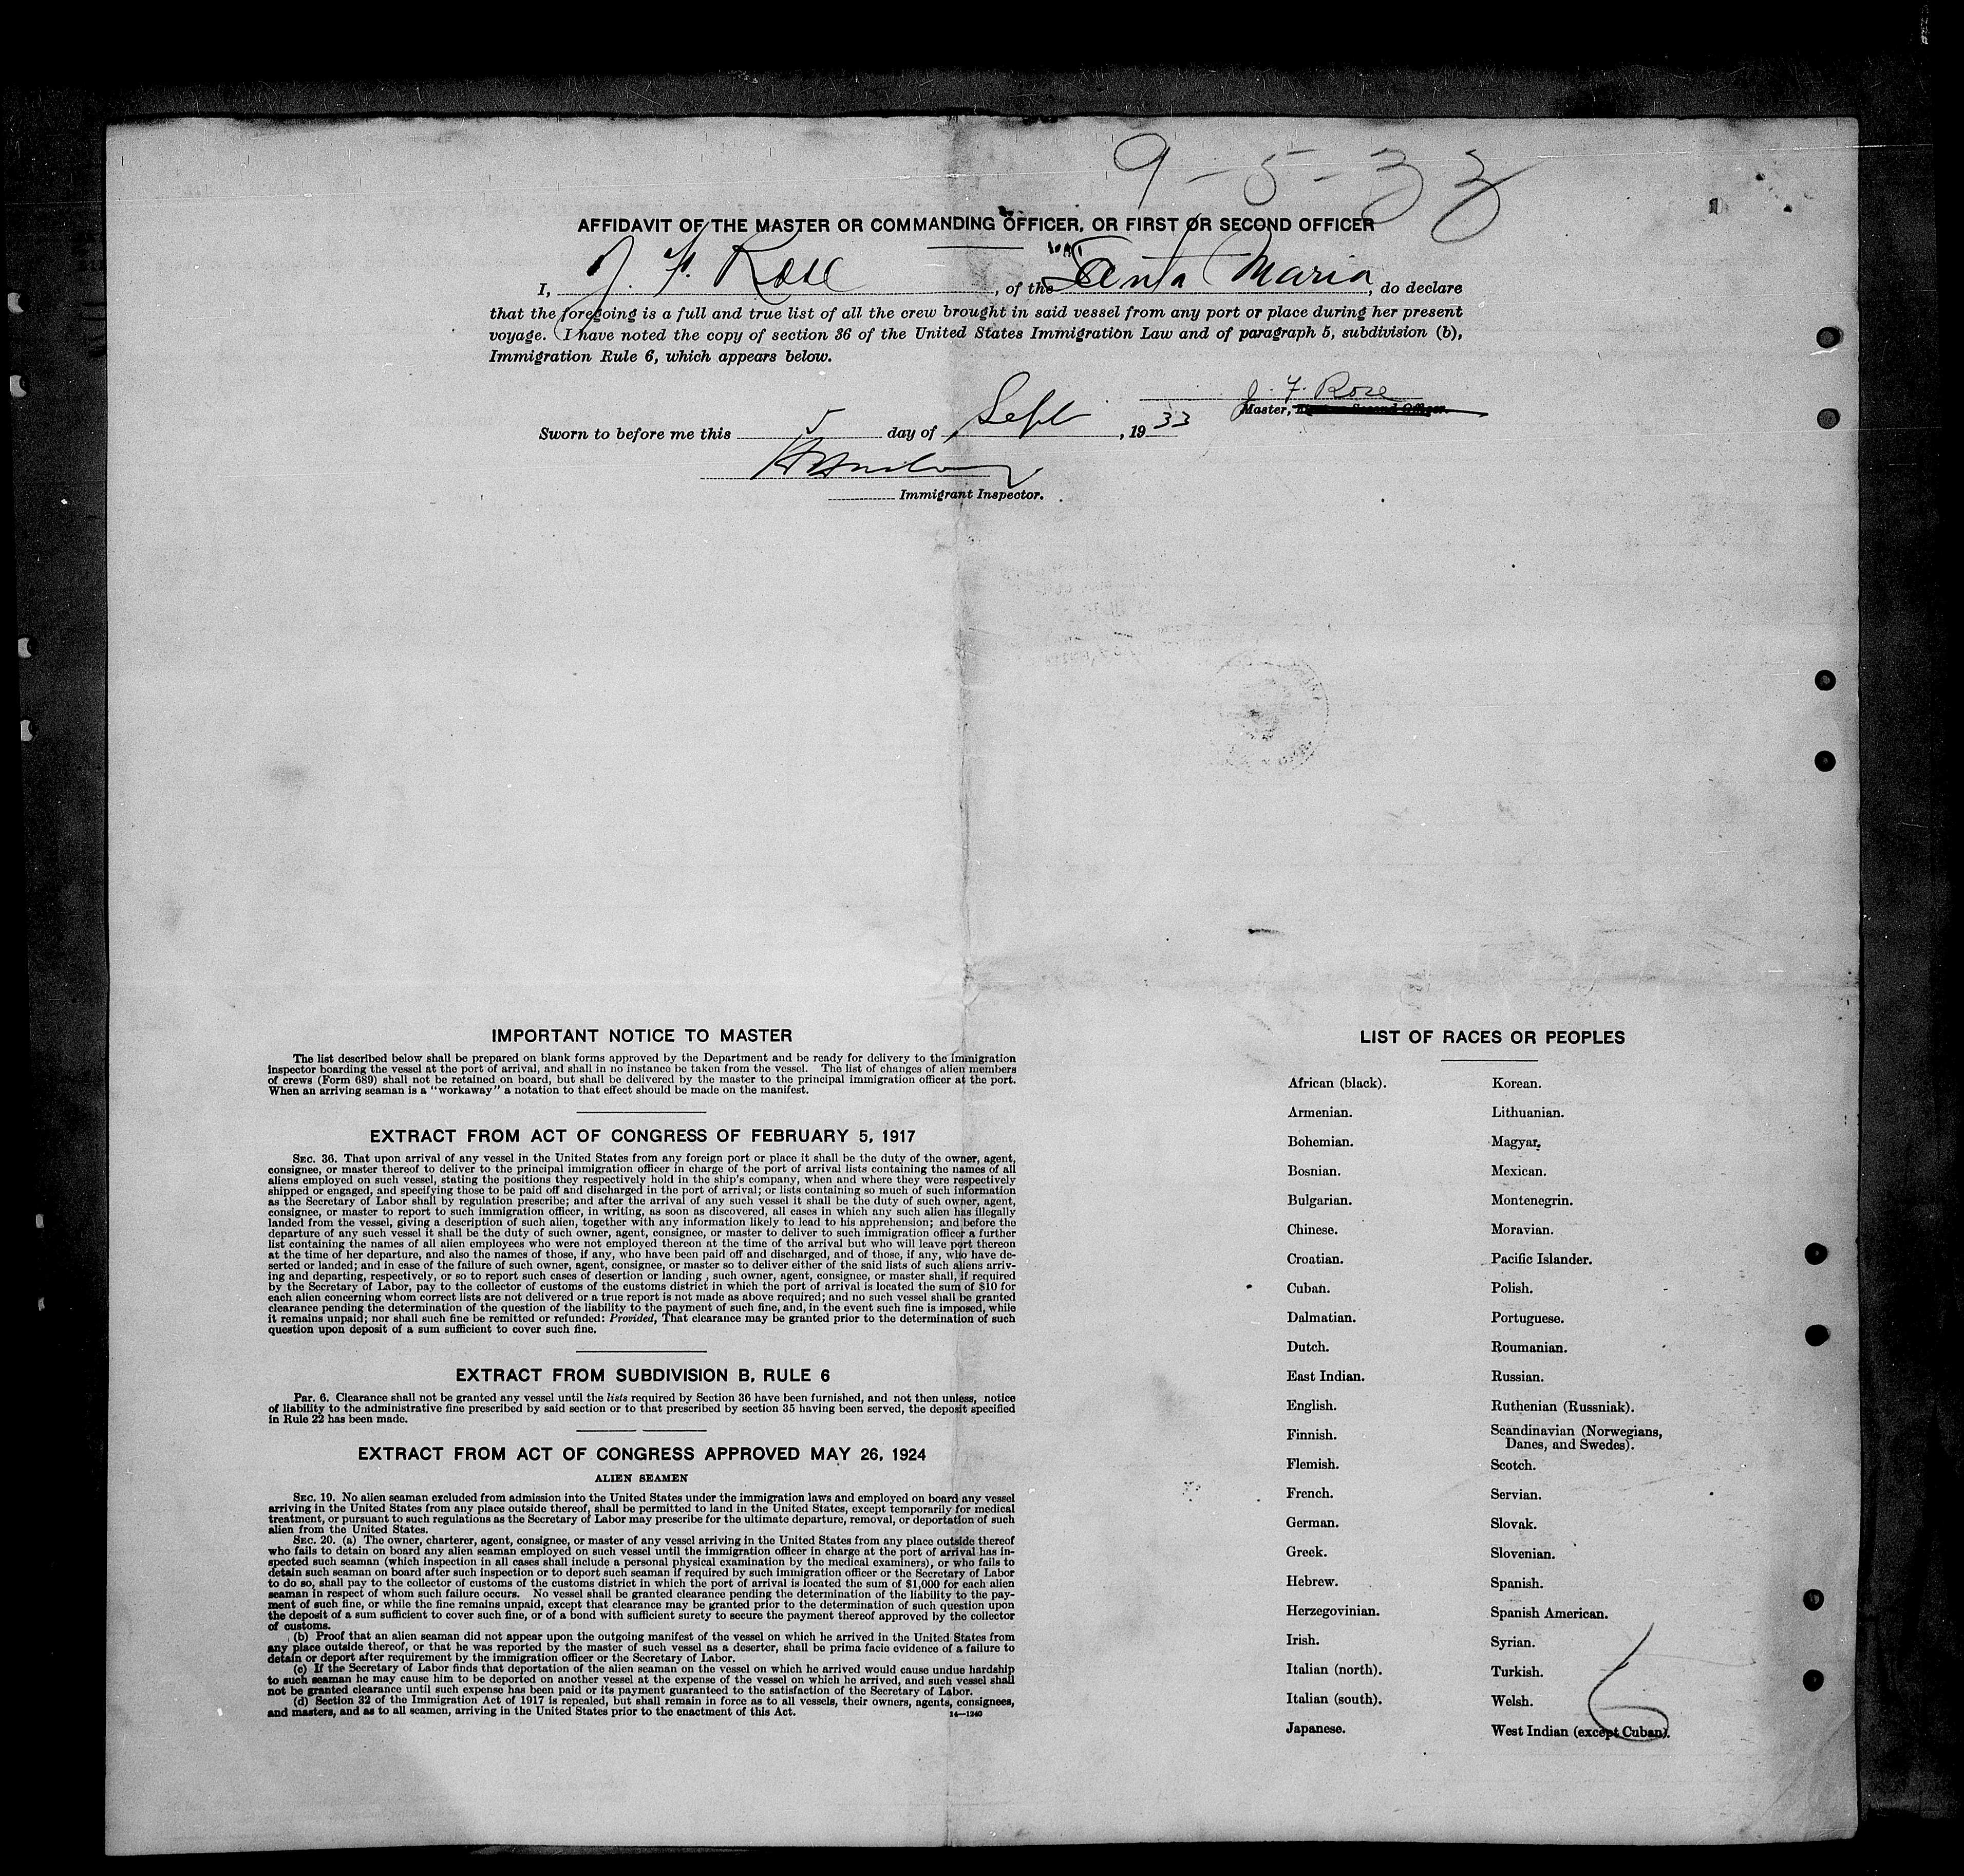 9-5-33
AFFIDAVIT OF THE MASTER OR COMMANDING OFFICER, OR FIRST OR SECOND OFFICER
I, J. F. Rose, of the Santa Maria, do declare
that the foregoing is a full and true list of all the crew brought in said vessel from any port or place during her present
voyage. I have noted the copy of section 36 of the United States Immigration Law and of paragraph 5, subdivision (b),
Immigration Rule 6, which appears below.
J. F. Rose
Master, First or Second Officer.
Sworn to before me this 5 day of Sept, 1933
Immigrant Inspector.
IMPORTANT NOTICE TO MASTER
The list described below shall be prepared on blank forms approved by the Department and be ready for delivery to the immigration
inspector boarding the vessel at the port of arrival, and shall in no instance be taken from the vessel. The list of changes of alien members
of crews (Form 689) shall not be retained on board, but shall be delivered by the master to the principal immigration officer at the port.
When an arriving seaman is a "workaway" a notation to that effect should be made on the manifest.
EXTRACT FROM ACT OF CONGRESS OF FEBRUARY 5, 1917
SEC. 36. That upon arrival of any vessel in the United States from any foreign port or place it shall be the duty of the owner, agent,
consignee, or master thereof to deliver to the principal immigration officer in charge of the port of arrival lists containing the names of all
aliens employed on such vessel, stating the positions they respectively hold in the ship's company, when and where they were respectively
shipped or engaged, and specifying those to be paid off and discharged in the port of arrival; or lists containing so much of such information
as the Secretary of Labor shall by regulation prescribe; and after the arrival of any such vessel it shall be the duty of such owner, agent,
consignee, or master to report to such immigration officer, in writing, as soon as discovered, all cases in which any such alien has illegally
landed from the vessel, giving a description of such alien, together with any information likely to lead to his apprehension; and before the
departure of any such vessel it shall be the duty of such owner, agent, consignee, or master to deliver to such immigration officer a further
list containing the names of all alien employees who were not employed thereon at the time of the arrival but who will leave port thereon
at the time of her departure, and also the names of those, if any, who have been paid off and discharged, and of those, if any, who have de-
serted or landed; and in case of the failure of such owner, agent, consignee, or master so to deliver either of the said lists of such aliens arriv-
ing and departing, respectively, or so to report such cases of desertion or landing , such owner, agent, consignee, or master shall, if required
by the Secretary of Labor, pay to the collector of customs of the customs district in which the port of arrival is located the sum of $10 for
each alien concerning whom correct lists are not delivered or a true report is not made as above required; and no such vessel shall be granted
clearance pending the determination of the question of the liability to the payment of such fine, and, in the event such fine is imposed, while
it remains unpaid; nor shall such fine be remitted or refunded: Provided, That clearance may be granted prior to the determination of such
question upon deposit of a sum sufficient to cover such fine.
EXTRACT FROM SUBDIVISION B, RULE 6
Par. 6. Clearance shall not be granted any vessel until the lists required by Section 36 have been furnished, and not then unless, notice
of liability to the administrative fine prescribed by said section or to that prescribed by section 35 having been served, the deposit specified
in Rule 22 has been made.
EXTRACT FROM ACT OF CONGRESS APPROVED MAY 26, 1924
ALIEN SEAMEN
SEC. 19. No alien seaman excluded from admission into the United States under the immigration laws and employed on board any vessel
arriving in the United States from any place outside thereof, shall be permitted to land in the United States, except temporarily for medical
treatment, or pursuant to such regulations as the Secretary of Labor may prescribe for the ultimate departure, removal, or deportation of such
alien from the United States.
SEC. 20. (a) The owner, charterer, agent, consignee, or master of any vessel arriving in the United States from any place outside thereof
who fails to detain on board any alien seaman employed on such vessel until the immigration officer in charge at the port of arrival has in-
spected such seaman (which inspection in all cases shall include a personal physical examination by the medical examiners), or who fails to
detain such seaman on board after such inspection or to deport such seaman if required by such immigration officer or the Secretary of Labor
to do so, shall pay to the collector of customs of the customs district in which the port of arrival is located the sum of $1,000 for each alien
seaman in respect of whom such failure occurs. No vessel shall be granted clearance pending the determination of the liability to the pay-
ment of such fine, or while the fine remains unpaid, except that clearance may be granted prior to the determination of such question upon
the deposit of a sum sufficient to cover such fine, or of a bond with sufficient surety to secure the payment thereof approved by the collector
of customs.
(b) Proof that an alien seaman did not appear upon the outgoing manifest of the vessel on which he arrived in the United States from
any place outside thereof, or that he was reported by the master of such vessel as a deserter, shall be prima facie evidence of a failure to
detain or deport after requirement by the immigration officer or the Secretary of Labor.
(c) If the Secretary of Labor finds that deportation of the alien seaman on the vessel on which he arrived would cause undue hardship
to such seaman he may cause him to be deported on another vessel at the expense of the vessel on which he arrived, and such vessel shall
not be granted clearance until such expense has been paid or its payment guaranteed to the satisfaction of the Secretary of Labor.
(d) Section 32 of the Immigration Act of 1917 is repealed, but shall remain in force as to all vessels, their owners, agents, consignees,
and masters, and as to all seamen, arriving in the United States prior to the enactment of this Act.
14—1240
LIST OF RACES OR PEOPLES
African (black).
Armenian.
Bohemian.
Bosnian.
Bulgarian.
Chinese.
Croatian.
Cuban.
Dalmatian.
Dutch.
East Indian.
English.
Finnish.
Flemish.
French.
German.
Greek.
Hebrew.
Herzegovinian.
Irish.
Italian (north).
Italian (south).
Japanese.
Korean.
Lithuanian.
Magyar.
Mexican.
Montenegrin.
Moravian.
Pacific Islander.
Polish.
Portuguese.
Roumanian.
Russian.
Ruthenian (Russniak).
Scandinavian (Norwegians,
Danes, and Swedes).
Scotch.
Servian.
Slovak.
Slovenian.
Spanish.
Spanish American.
Syrian.
Turkish.
Welsh.
West Indian (except Cuban).
6